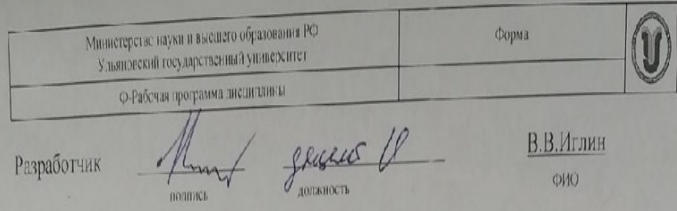 Министерство науки и высшего образования РФ
Ульяновский государственный университет
Форма
Ф-Рабочая программа дисциплины
Разработчик
доцент
В.В.Иглин
подпись
должность
ФИО